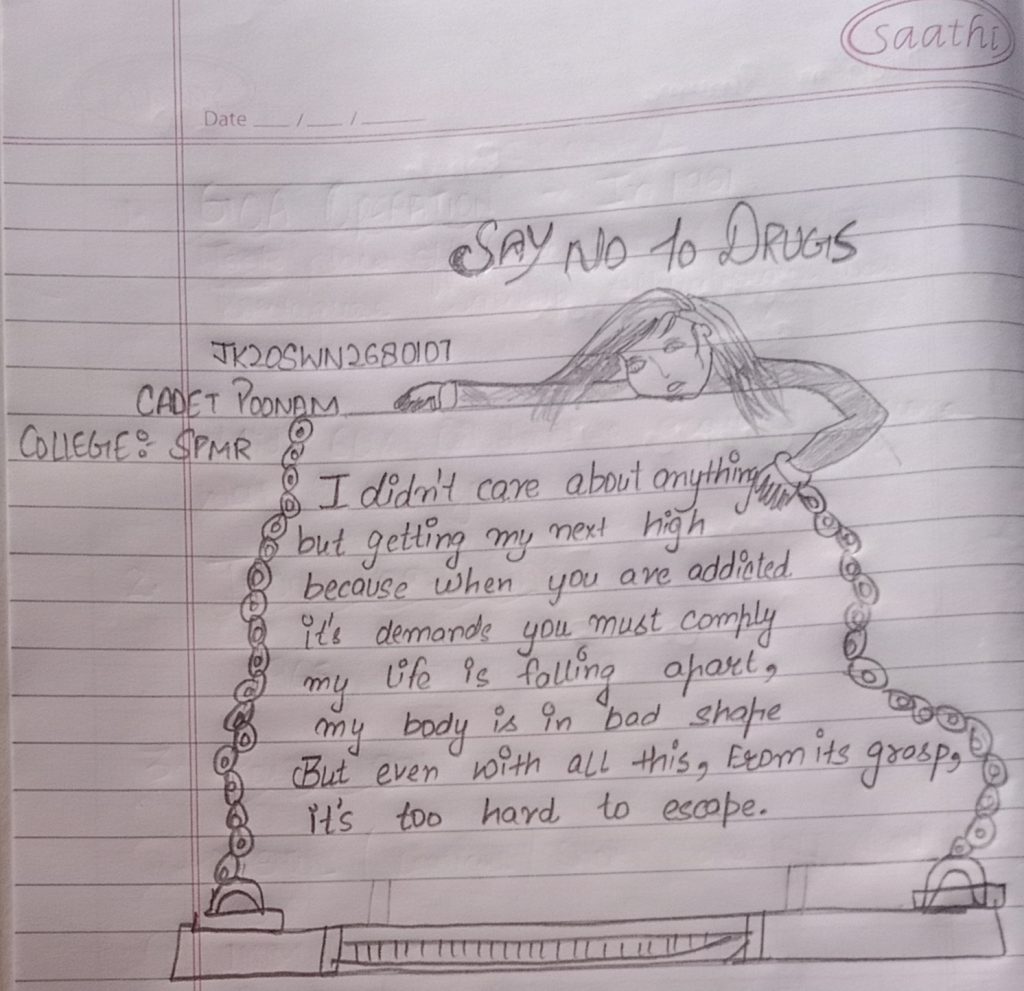 saathi
Date __/__/____
SAY NO to DRUGS
JK20SWN2680107
CADET POONAM
COLLEGE: SPMR
I didn't care about anything
but getting my next high
because when you are addicted
it's demands you must comply
my life is falling apart,
my body is in bad shape
But even with all this, From its grasp,
it's too hard to escape.